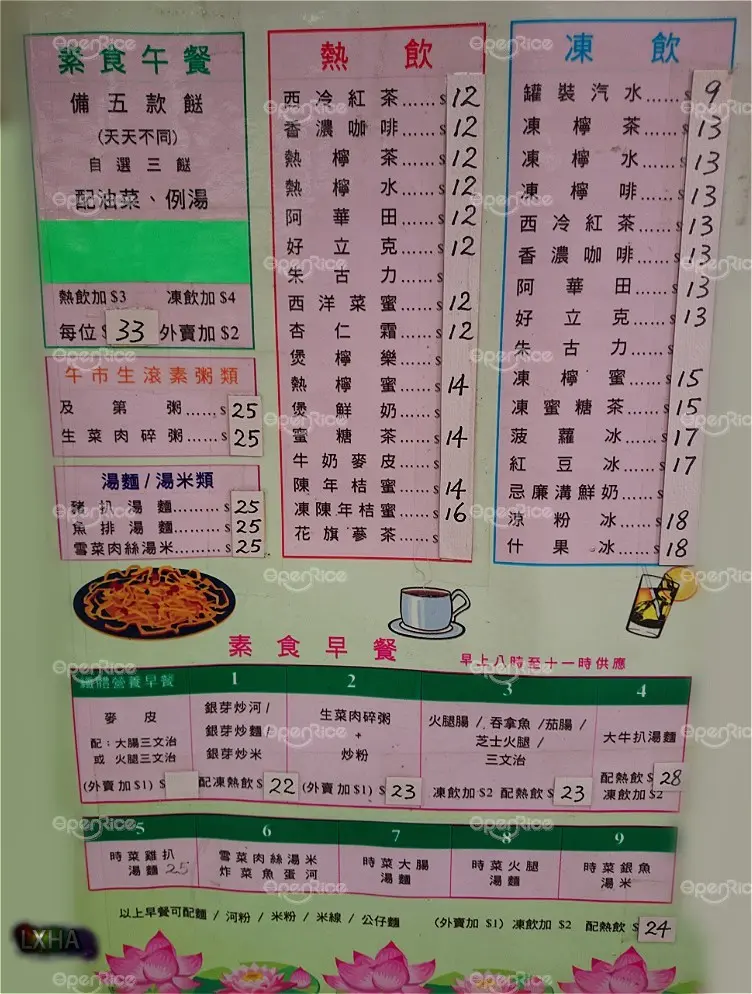 素食午餐
備五款餸
(天天不同)
自選三餸
配油菜、例湯
熱飲加 $3 凍飲加 $4
每位 $ 33 外賣加 $2
午市生滾素粥類
及第粥......$ 25
生菜肉碎粥...$ 25
湯麵 / 湯米類
豬扒湯麵.........$ 25
魚排湯麵.........$ 25
雪菜肉絲湯米.........$ 25
熱飲
西冷紅茶......$ 12
香濃咖啡......$ 12
熱檸茶......$ 12
熱檸水......$ 12
阿華田......$ 12
好立克......$ 12
朱古力......$
西洋菜蜜...$ 12
杏仁霜...$ 12
煲檸樂...$
熱檸蜜...$ 14
煲鮮奶...$
蜜糖茶...$ 14
牛奶麥皮......$
陳年桔蜜...$ 14
凍陳年桔蜜...$ 16
花旗蔘茶...$
凍飲
罐裝汽水......$ 9
凍檸茶......$ 13
凍檸水......$ 13
凍檸啡......$ 13
西冷紅茶......$ 13
香濃咖啡......$ 13
阿華田......$ 13
好立克......$ 13
朱古力......$
凍檸蜜......$ 15
凍蜜糖茶......$ 15
菠蘿冰......$ 17
紅豆冰......$ 17
忌廉溝鮮奶......$
涼粉冰......$ 18
什果冰......$ 18
素食早餐
早上八時至十一時供應
纖體營養早餐
麥皮
配：大腸三文治
或 火腿三文治
(外賣加 $1) $
1
銀芽炒河 /
銀芽炒麵 /
銀芽炒米
配凍熱飲 $ 22
2
生菜肉碎粥
+
炒粉
(外賣加 $1) $ 23
3
火腿腸 / 吞拿魚 / 茄腸 /
芝士火腿 /
三文治
凍飲加 $2 配熱飲 $ 23
4
大牛扒湯麵
配熱飲 $ 28
凍飲加 $2
5
時菜雞扒
湯麵 25
6
雪菜肉絲湯米
炸菜魚蛋河
7
時菜大腸
湯麵
8
時菜火腿
湯麵
9
時菜銀魚
湯米
以上早餐可配麵 / 河粉 / 米粉 / 米線 / 公仔麵 (外賣加 $1) 凍飲加 $2 配熱飲 $ 24
LXHA
OpenRice